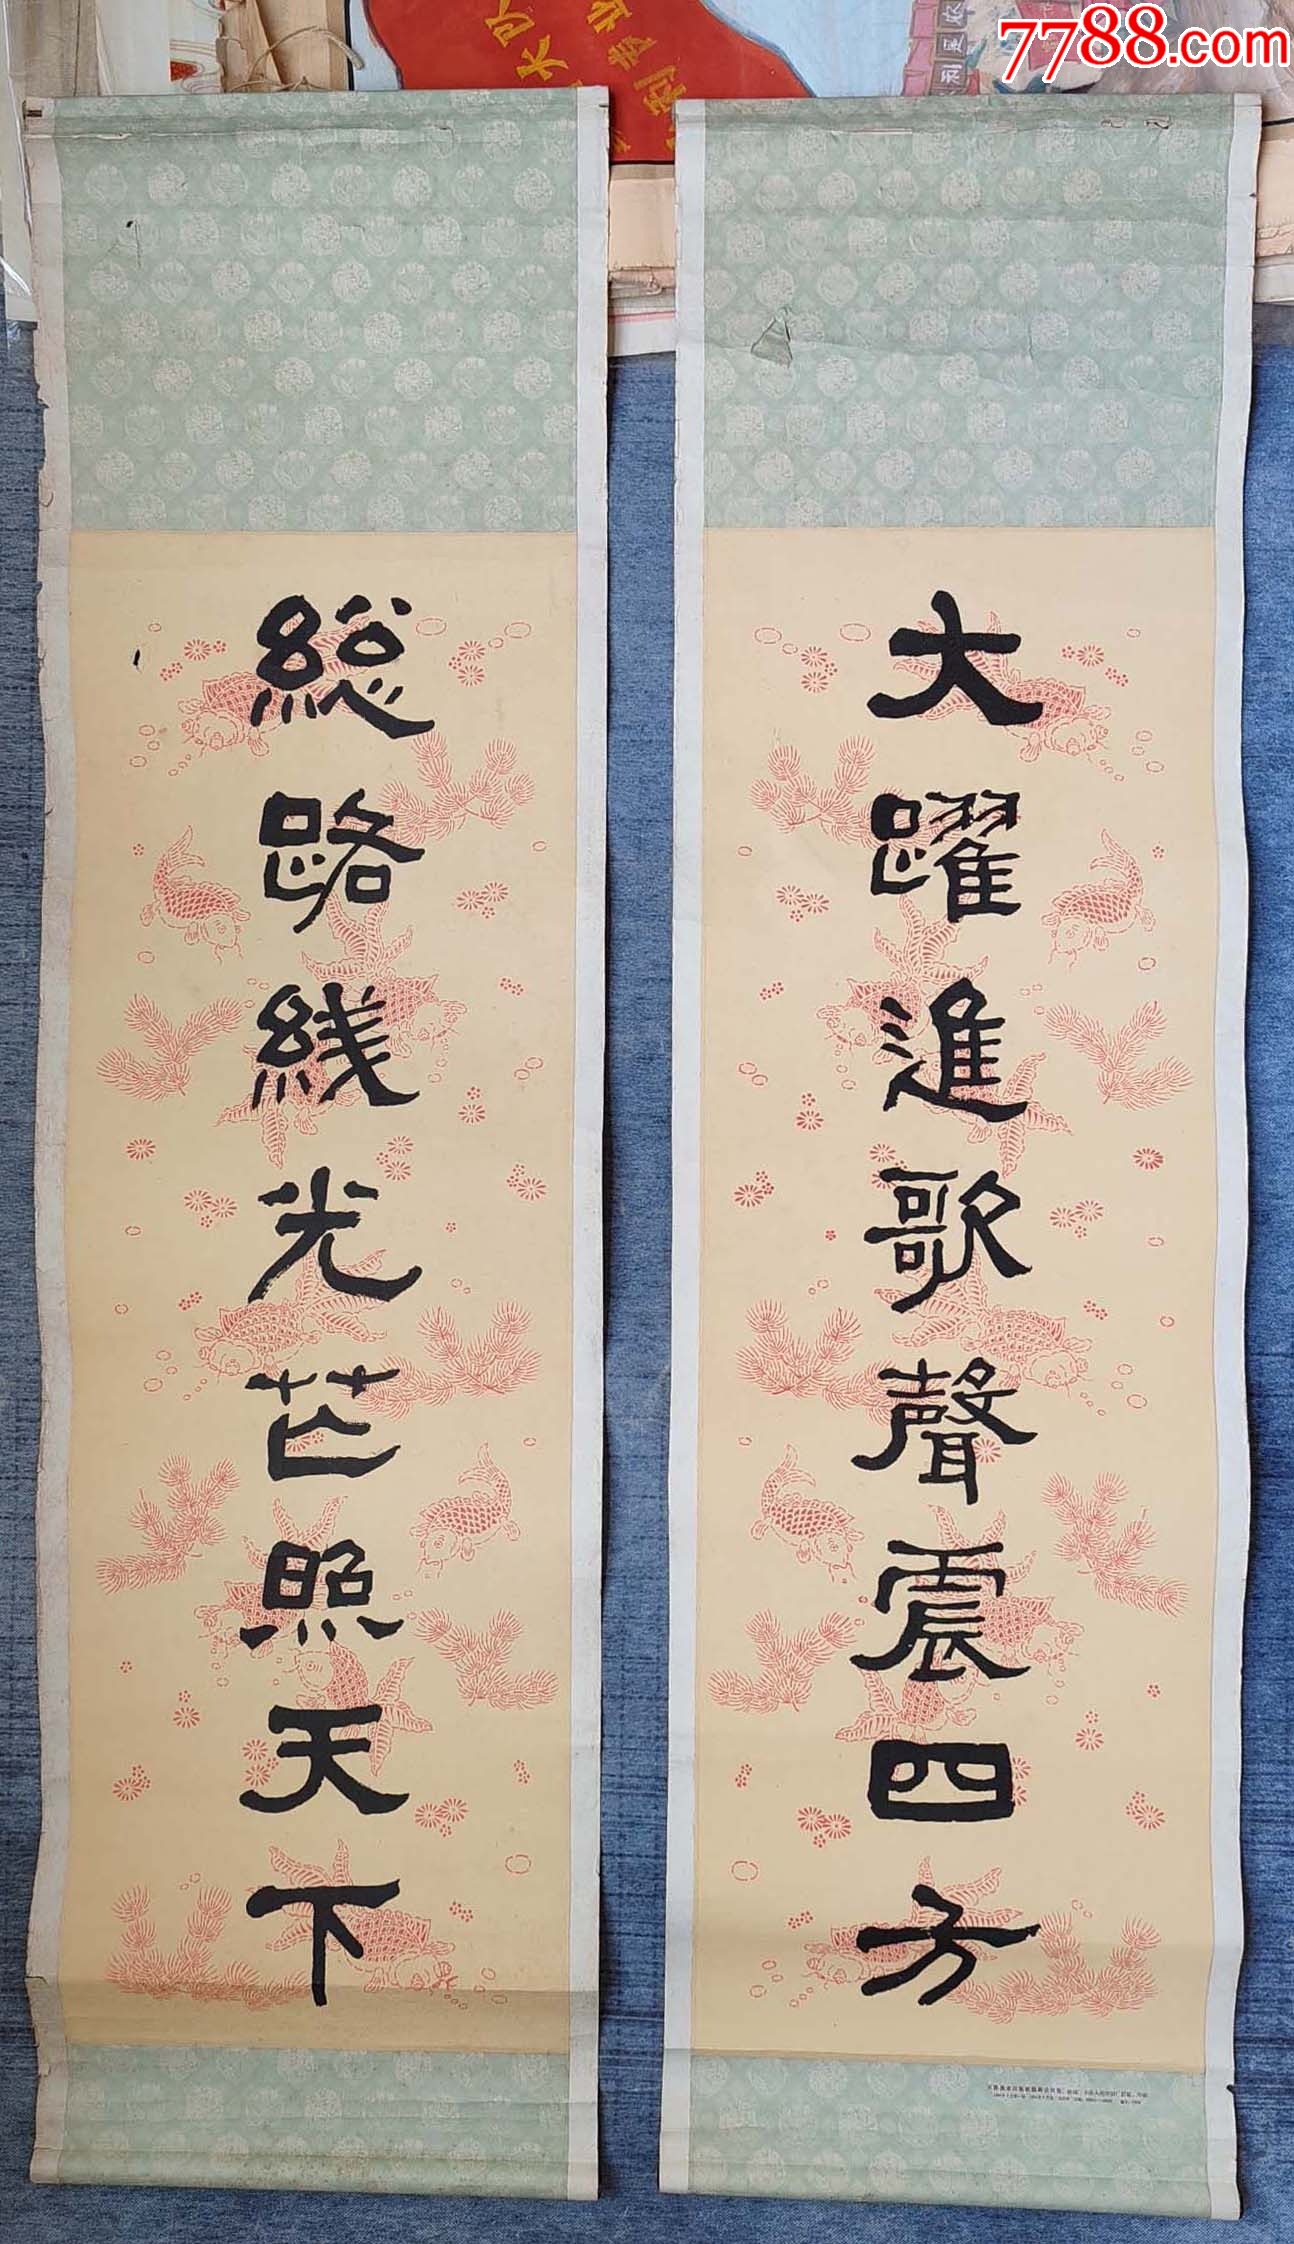 7788.com
大躍進歌聲震四方
総路綫光芒照天下